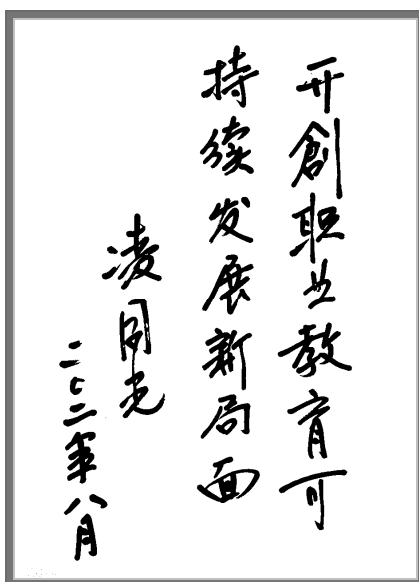 开創职业教育可
持续发展新局面
凌同光
二〇二年八月